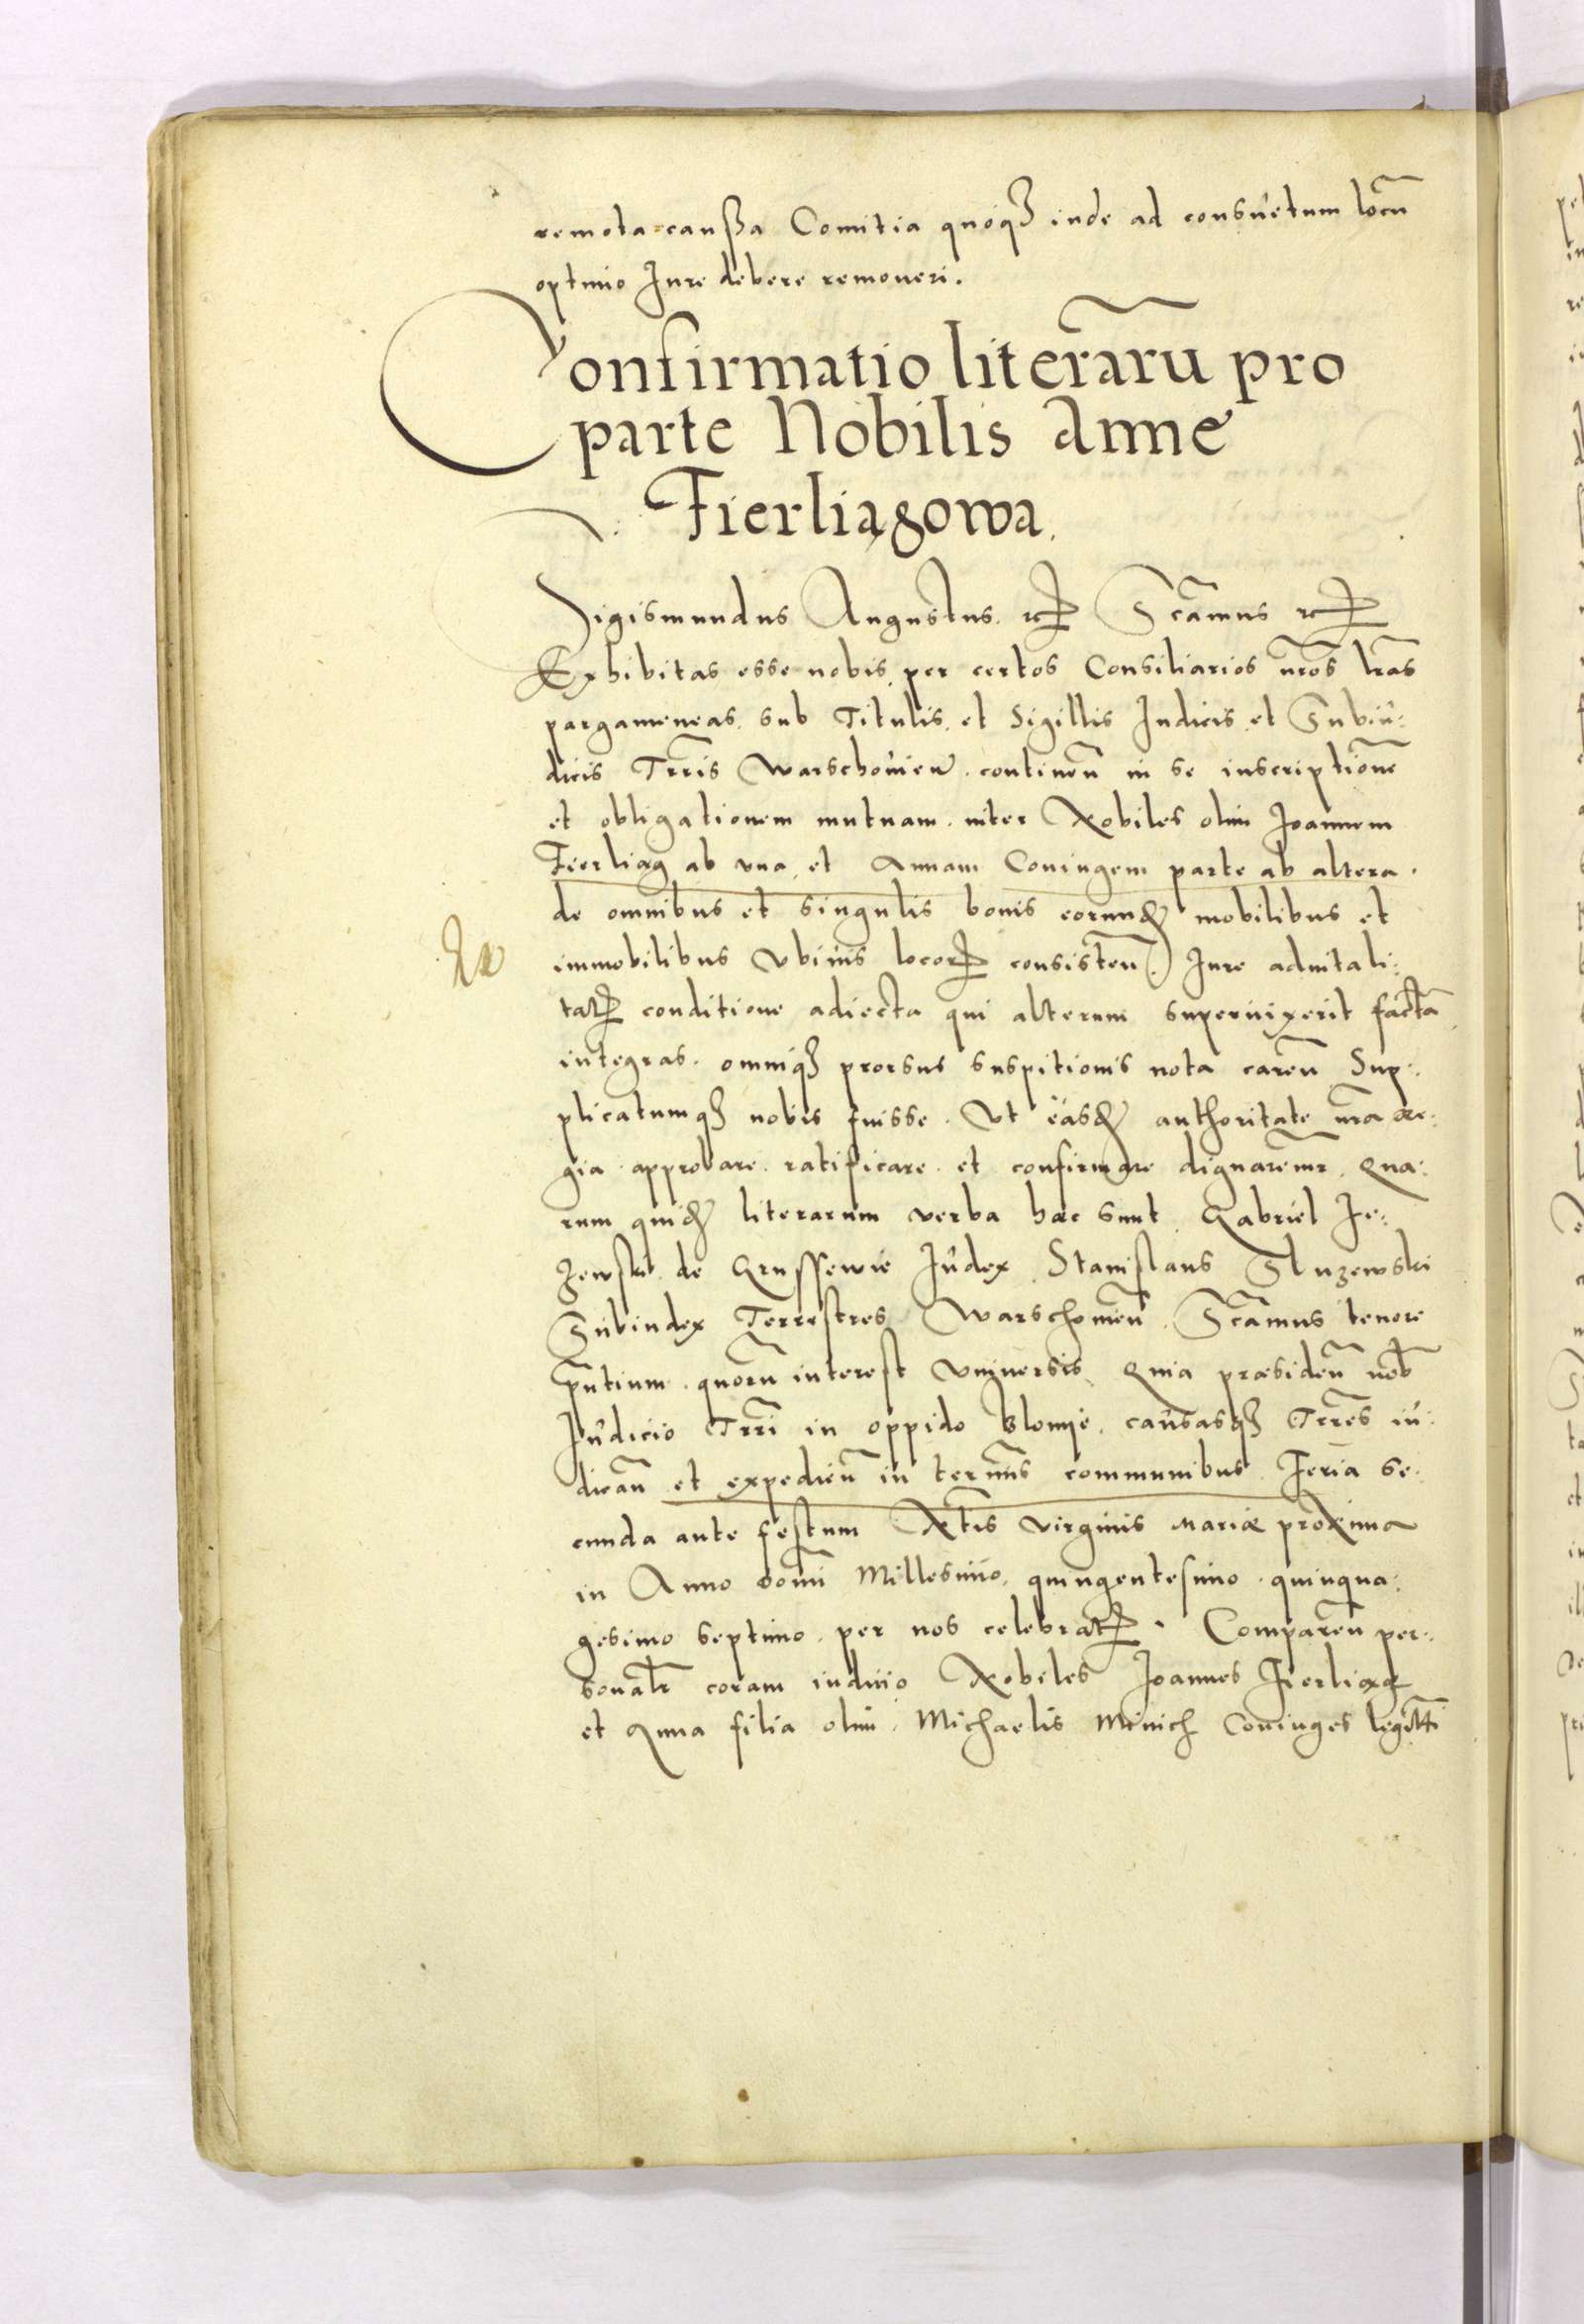 remota caussa Comitia quoqꝫ inde ad consuetum locū
optimo Iure debere remoueri.
Confirmatio literarū pro
parte Nobilis Anne
Fierliągowa.
Sigismundus Augustus. ꝛc Scāmus ꝛc
Exhibitas esse nobis per certos Consiliarios nr̄os lr̄as
pargameneas. sub Titulis et Sigillis Iudicis et Subiu:
dicis Terrīs Warschouien̄. continen̄ in se inscriptionē
et obligationem mutuam. inter Nobiles olim Ioannem
Fierliąg ab vna et Annam Coniugem parte ab altera.
de omnibus et singulis bonis eorundē mobilibus et
immobilibus vbiuis locorꝝ consisten̄. Iure aduitali:
tatꝭ conditione adiecta qui alterum superuixerit factā
integras. omniqꝫ prorsus suspitionis nota caren̄ Sup:
plicatumqꝫ nobis fuisse. Vt easdē authoritate nr̄a re:
gia approbare. ratificare. et confirmare dignaremur. Qua:
rum quidē literarum verba hæc sunt. Gabriel Ie:
zewski de Grussewie Iudex. Stanislaus Sluzewski
Subiudex Terrestres Warschouien̄. Scāmus tenore
pn̄tium. quorū interest vniuersis. Quia præsiden̄ nob̄
Iudicio Terrī in oppido Blonye. causasqꝫ Terrēs iu:
dican̄ et expedien̄ in termīs communibus. Feria se:
cunda ante festum Nt̄is virginis Mariæ proxima
in Anno Domī Millesimo. quingentesimo. quinqua:
gesimo septimo. per nos celebratꝭ. Comparen̄ per:
sonalr̄ coram iudicio Nobiles Ioannes Fierliąg
et Anna filia olim Michaelis Minich Coniuges legitt̄i